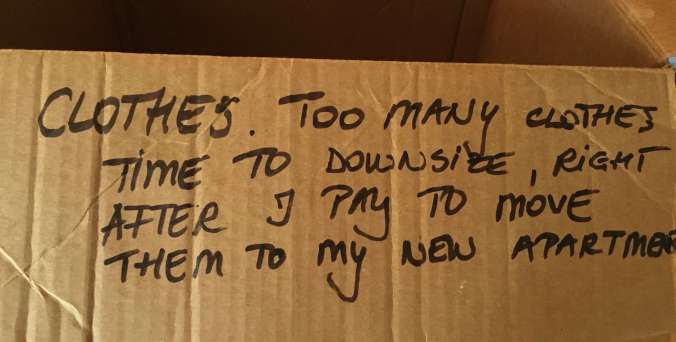 CLOTHES. TOO MANY CLOTHES
TIME TO DOWNSIZE, RIGHT
AFTER I PAY TO MOVE
THEM TO MY NEW APARTME